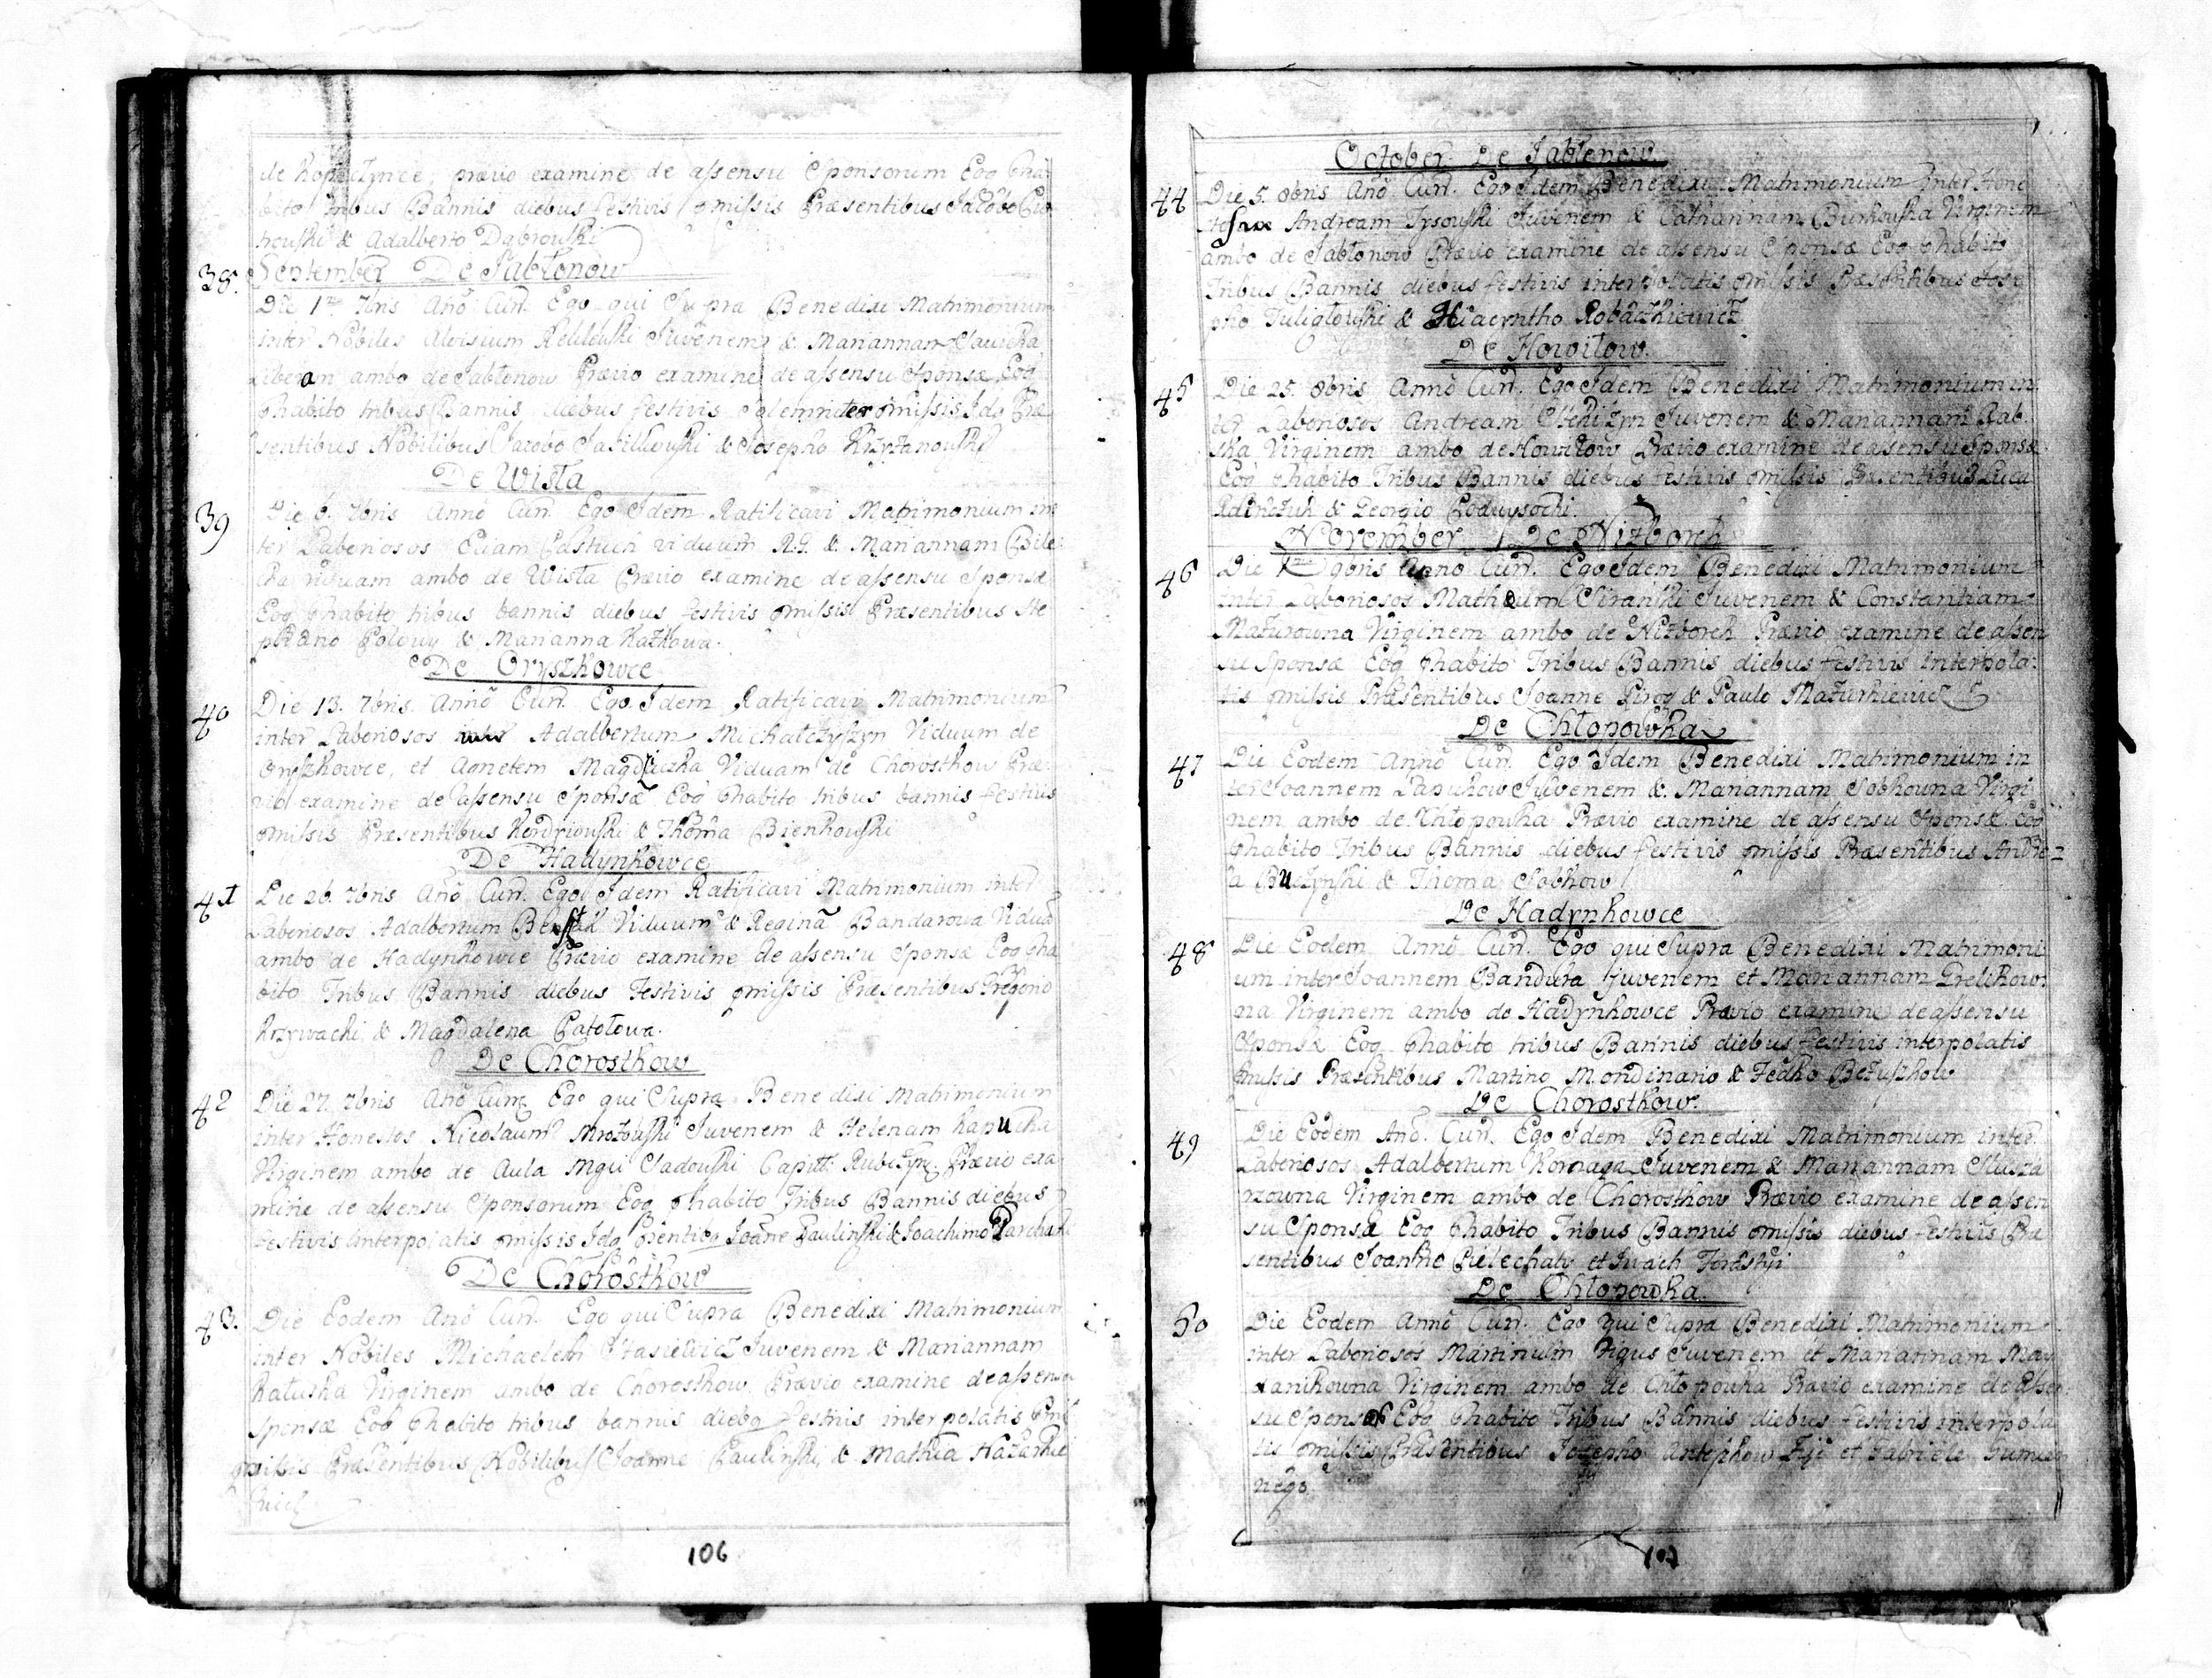 de Kopeczynce, prævio examine de assensu Sponsorum Eoq̃ Pha
bito tribus Bannis diebus Festivis Præsentibus Jacobo
& Adalberto Dąbrowski
38. September De Jabłonow
Die 1ma 7bris Anō Cur. Ego qui Supra Benedixi Matrimonium
inter Nobiles Aloisium Juvenem & Mariannam
Liberam ambo de Jabłonow Prævio examine de assensu Sponsæ Eoq̃
Phabito tribus Bannis diebus festivis Solemniter Præ
sentibus Nobilibus Jacobo & Josepho Krzyżanowski
De Wista
39 Die 6. 7bris Annō Cur. Ego Idem Ratificavi Matrimonium in
ter Laboriosos Eliam Pastuch viduum R.G. & Mariannam Bile
cka Viduam ambo de Wista Prævio examine de assensu Sponsæ
Eoq̃ Phabito tribus bannis diebus festivis omissis Præsentibus Ste
phano Polowy & Marianna Kazkowa.
De Oryszkowce
40 Die 13. 7bris Annō Cur. Ego Idem Ratificavi Matrimonium
inter Laboriosos Adalbertum Michałczyszyn Viduum de
Oryszkowce, et Agnetem Viduam de Chorostkow Præ
vio examine de assensu Sponsæ Eoq̃ Phabito tribus bannis festivis
omissis Præsentibus & Thoma Bienkowski
De Hadynkowce
41 Die 26. 7bris Anō Cur. Ego Idem Ratificavi Matrimonium inter
Laboriosos Adalbertum Viduum & Reginā Bandarowa Viduā
ambo de Hadynkowce Prævio examine de assensu Sponsæ Eoq̃ Pha
bito Tribus Bannis diebus Festivis omissis Præsentibus Gregorio
Krzywacki & Magdalena
De Chorostkow
42 Die 27. 7bris Anō Cur. Ego qui Supra Benedixi Matrimonium
inter Honestos Nicolaum Mrozowski Juvenem & Helenam
Virginem ambo de Aula Mgci Sadowski Prævio exa
mine de assensu Sponsorum Eoq̃ Phabito Tribus Bannis diebus
Festivis Interpolatis omissis Joāne Paulinski & Joachimo
De Chorostkow
43. Die Eodem Anō Cur. Ego qui Supra Benedixi Matrimonium
inter Nobiles Michaelem Stasiewicz Juvenem & Mariannam
Virginem ambo de Chorostkow Prævio examine de assensu
Sponsæ Eoq̃ Phabito tribus bannis festivis interpolatis
omissis Præsentibus Nobilibus Joanne Paulinski, & Mathia
106
October De Jabłonow.
44 Die 5. 8bris Anō Cur. Ego Idem Benedixi Matrimonium Inter Hone
stos Andream Tysowski Juvenem & Catharinam Burkowska Virginem
ambo de Jabłonow Prævio examine de assensu Sponsæ Eoq̃ Phabito
Tribus Bannis diebus festivis interpolatis omissis Præsentibus Jose
pho Tuligłowski & Hiacyntho Robaczkiewicz
De Howiłow.
45 Die 25. 8bris Annō Cur. Ego Idem Benedixi Matrimonium in
ter Laboriosos Andream Juvenem & Mariannam Rab
ska Virginem ambo de Howiłow Prævio examine de assensu Sponsæ
Eoq̃ Phabito Tribus Bannis diebus festivis omissis Præsentibus Luca
& Georgio Podwysocki.
November De Niżborch
46 Die 1ma 9bris Anno Cur. Ego Idem Benedixi Matrimonium
inter Laboriosos Juvenem & Constantiam
Mazurowna Virginem ambo de Niżborch Prævio examine de assen
su Sponsæ Eoq̃ Phabito Tribus Bannis diebus festivis interpola
tis omissis Præsentibus Joanne Pirog & Paulo Mazurkiewicz
De Chłopowka
47 Die Eodem Annō Cur. Ego Idem Benedixi Matrimonium in
ter Joannem Juvenem & Mariannam Sobkowna Virgi
nem ambo de Chłopowka Prævio examine de assensu Sponsæ Eoq̃
Phabito Tribus Bannis diebus festivis omissis Præsentibus Andre
a Buczynski & Thoma Sobkow
De Hadynkowce
48 Die Eodem Annō Cur. Ego qui Supra Benedixi Matrimoni
um inter Joannem Bandura juvenem et Mariannam Grelikow
na Virginem ambo de Hadynkowce Prævio examine de assensu
Sponsæ Eoq̃ Phabito tribus Bannis diebus Festivis interpolatis
omissis Præsentibus Martino Mordinario & Fedko Bezuszkow
De Chorostkow.
49 Die Eodem Anō. Cur. Ego Idem Benedixi Matrimonium inter
Laboriosos Adalbertum Kornaga Juvenem & Mariannam Slusza
rzowna Virginem ambo de Chorostkow Prævio examine de assen
su Sponsæ Eoq̃ Phabito Tribus Bannis omissis diebus festivis Præ
sentibus Joanne et Iwach
De Chłopowka.
50 Die Eodem Annō Cur. Ego qui Supra Benedixi Matrimonium
inter Laboriosos Martinum Figus Juvenem et Mariannam
Virginem ambo de Chłopowka Prævio examine de assen
su Sponsæ Eoq̃ Phabito Tribus Bannis diebus Festivis interpola
tis omissis Præsentibus Josepho et Gabriele
nego.
107